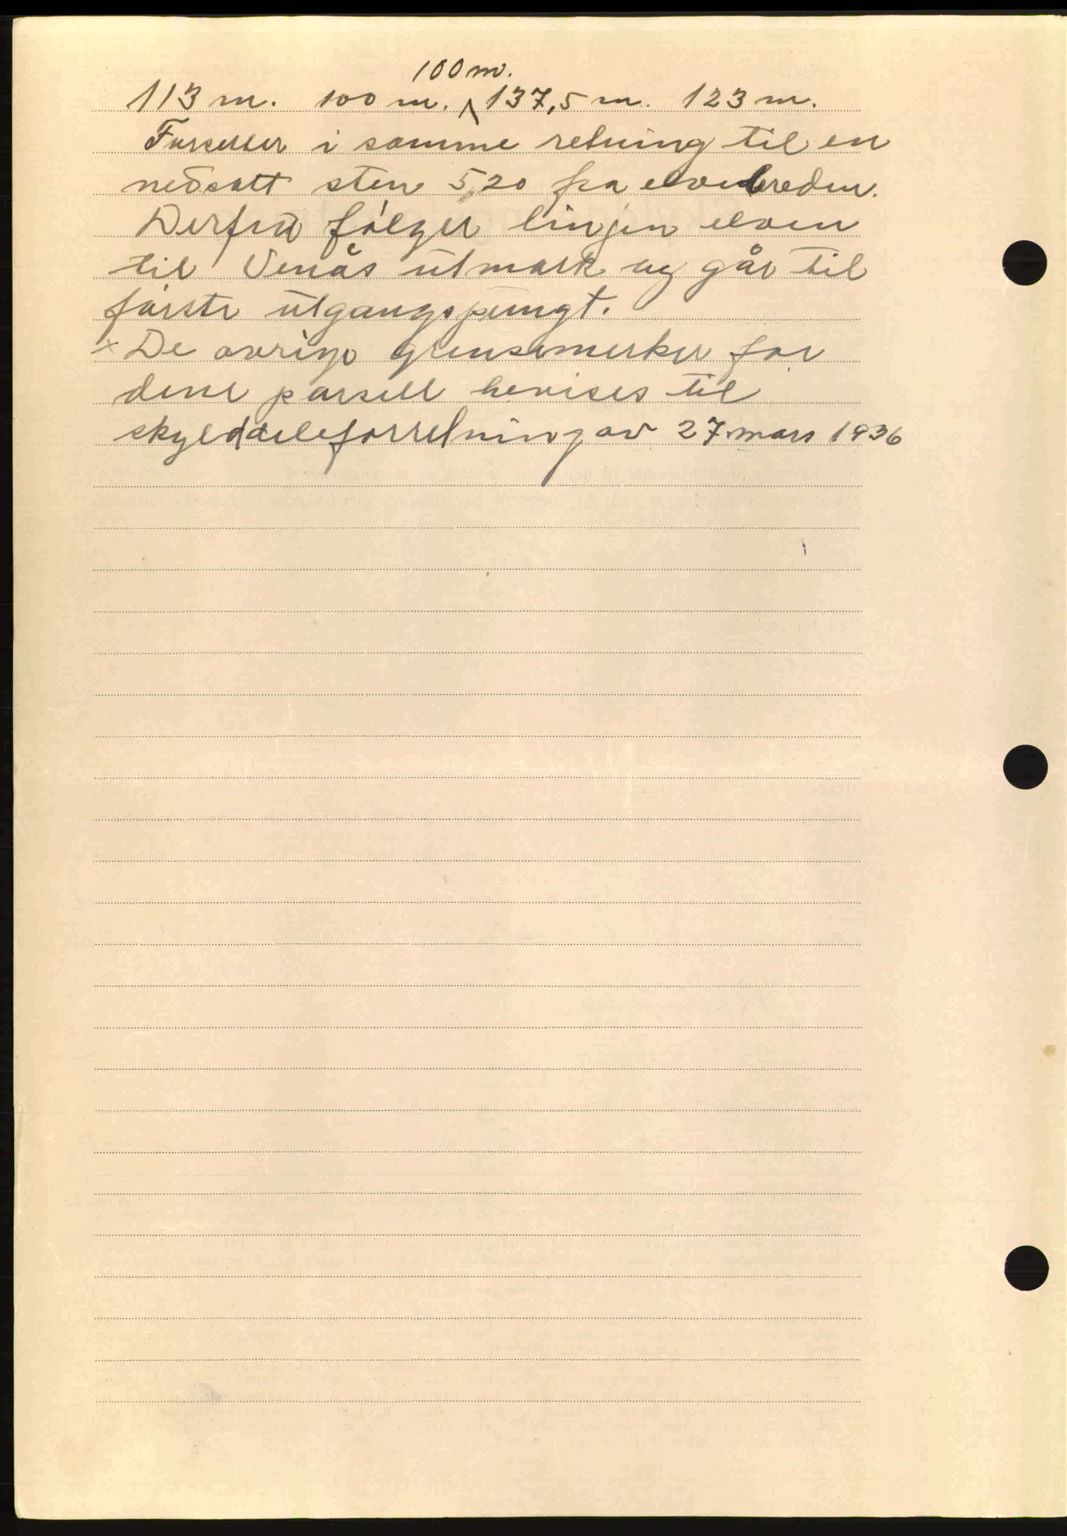 100 m.
113 m. 100 m. 137,5 m. 123 m.
Farsetter i samme retning til en
nedsatt sten 5,20 fra elvebreden.
Derfra følger linjen elven
til Venås utmark og går til
første utgangspungt.
x De øvrige grensemerker for
dene parsell henvises til
skylddeleforretning av 27 mars 1936